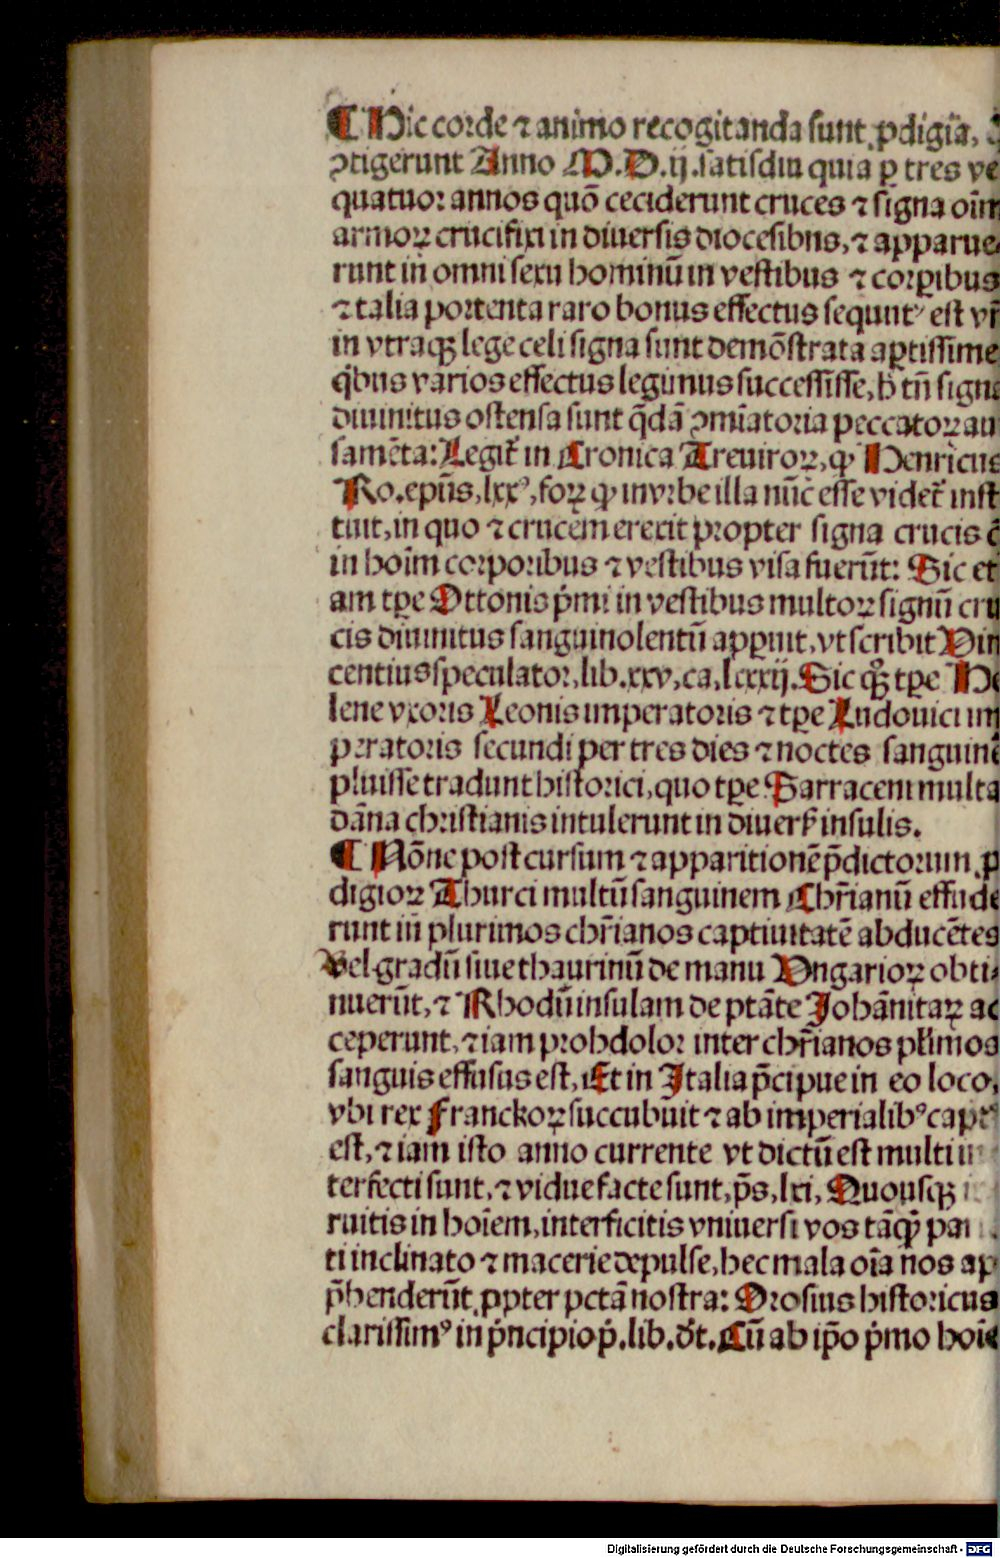 ¶ Hic corde ⁊ animo recogitanda sunt ꝓdigia,
ꝯtigerunt Anno M.D.ij.satisdiu quia ꝑ tres ve
quatuor annos quō ceciderunt cruces ⁊ signa oīm
armoꝝ crucifixi in diuersis diocesibus, ⁊ apparue
runt in omni sexu hominū in vestibus ⁊ corꝑibus
⁊ talia portenta raro bonus effectus sequunt᷑ est vr̄
in vtraqꝫ lege celi signa sunt demōstrata aꝑtissime
q̇bus varios effectus legimus successisse, h̄ tn̄ signa
diuinitus ostensa sunt q̄dā ꝯmīatoria peccatoꝝ au
samēta: Legit᷑ in Cronica Treuiroꝝ, ꝙ Henricus
Ro.epūs, lxxꝰ, foꝝ ꝙ in vrbe illa nūc esse videt᷑ inst
tuit, in quo ⁊ crucem erexit propter signa crucis
in hoīm corporibus ⁊ vestibus visa fuerūt: Sic et
am tꝑe Ottonis p̄mi in vestibus multoꝝ signū cru
cis diuinitus sanguinolentū apꝑuit, vt scribit Vin
centius speculator, lib.xxv, ca, lxxij. Sic qꝫ tꝑe He
lene vxoris Leonis imperatoris ⁊ tꝑe Ludouici im
peratoris secundi per tres dies ⁊ noctes sanguinē
pluisse tradunt historici, quo tꝑe Sarraceni multa
dāna christianis intulerunt in diuers̄ insulis.
¶ Nōne post cursum ⁊ apparitionē p̄dictorum ꝓ
digioꝝ Thurci multū sanguinem Chr̄ianū effude
runt īn plurimos chr̄ianos captiuitatē abducētes
Velgradū siue thaurinū de manu Vngarioꝝ obti⸗
nuerūt, ⁊ Rhodū insulam de ptāte Johānitaꝝ ac
ceperunt, ⁊ iam prohdolor inter chr̄ianos pl̄imos
sanguis effusus est, Et in Italia p̄cipue in eo loco,
vbi rex Franckoꝝ succubuit ⁊ ab imperialibꝰ capt
est, ⁊ iam isto anno currente vt dictū est multi in
terfecti sunt, ⁊ vidue facte sunt, p̄s, lxi, Quousqꝫ
ruitis in hoīem, interficitis vniuersi vos tāqꝫ pa
ti inclinato ⁊ macerie depulse, hec mala oīa nos ap
p̄henderūt ꝓpter pctā nostra: Orosius historicus
clarissimꝰ in p̄ncipio p̄.lib.dt. Cū ab ip̄o p̄mo hoīe
Digitalisierung gefördert durch die Deutsche Forschungsgemeinschaft - DFG